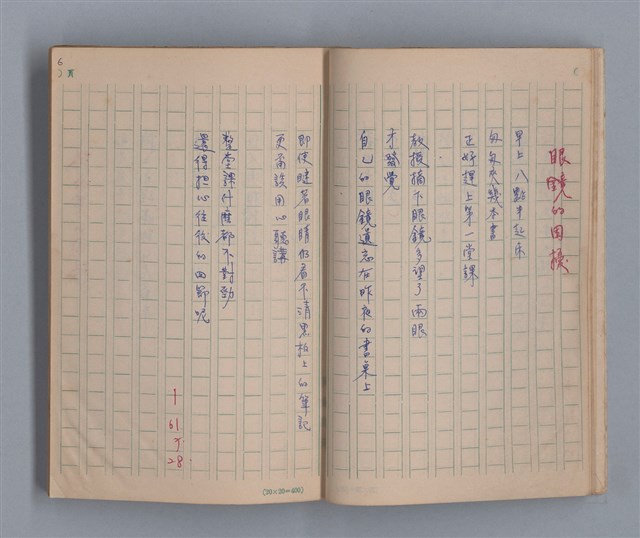 眼鏡的困擾
早上八點半起床
匆匆夾幾本書
正好趕上第一堂課
教授摘下眼鏡多望了兩眼
才發覺
自己的眼鏡遺忘在昨夜的書桌上
即使瞇著眼睛仍看不清黑板上的筆記
更甭談用心聽講
整堂課什麼都不對勁
還得擔心往後的四節呢
61
28.
6
頁
(20×20=400)